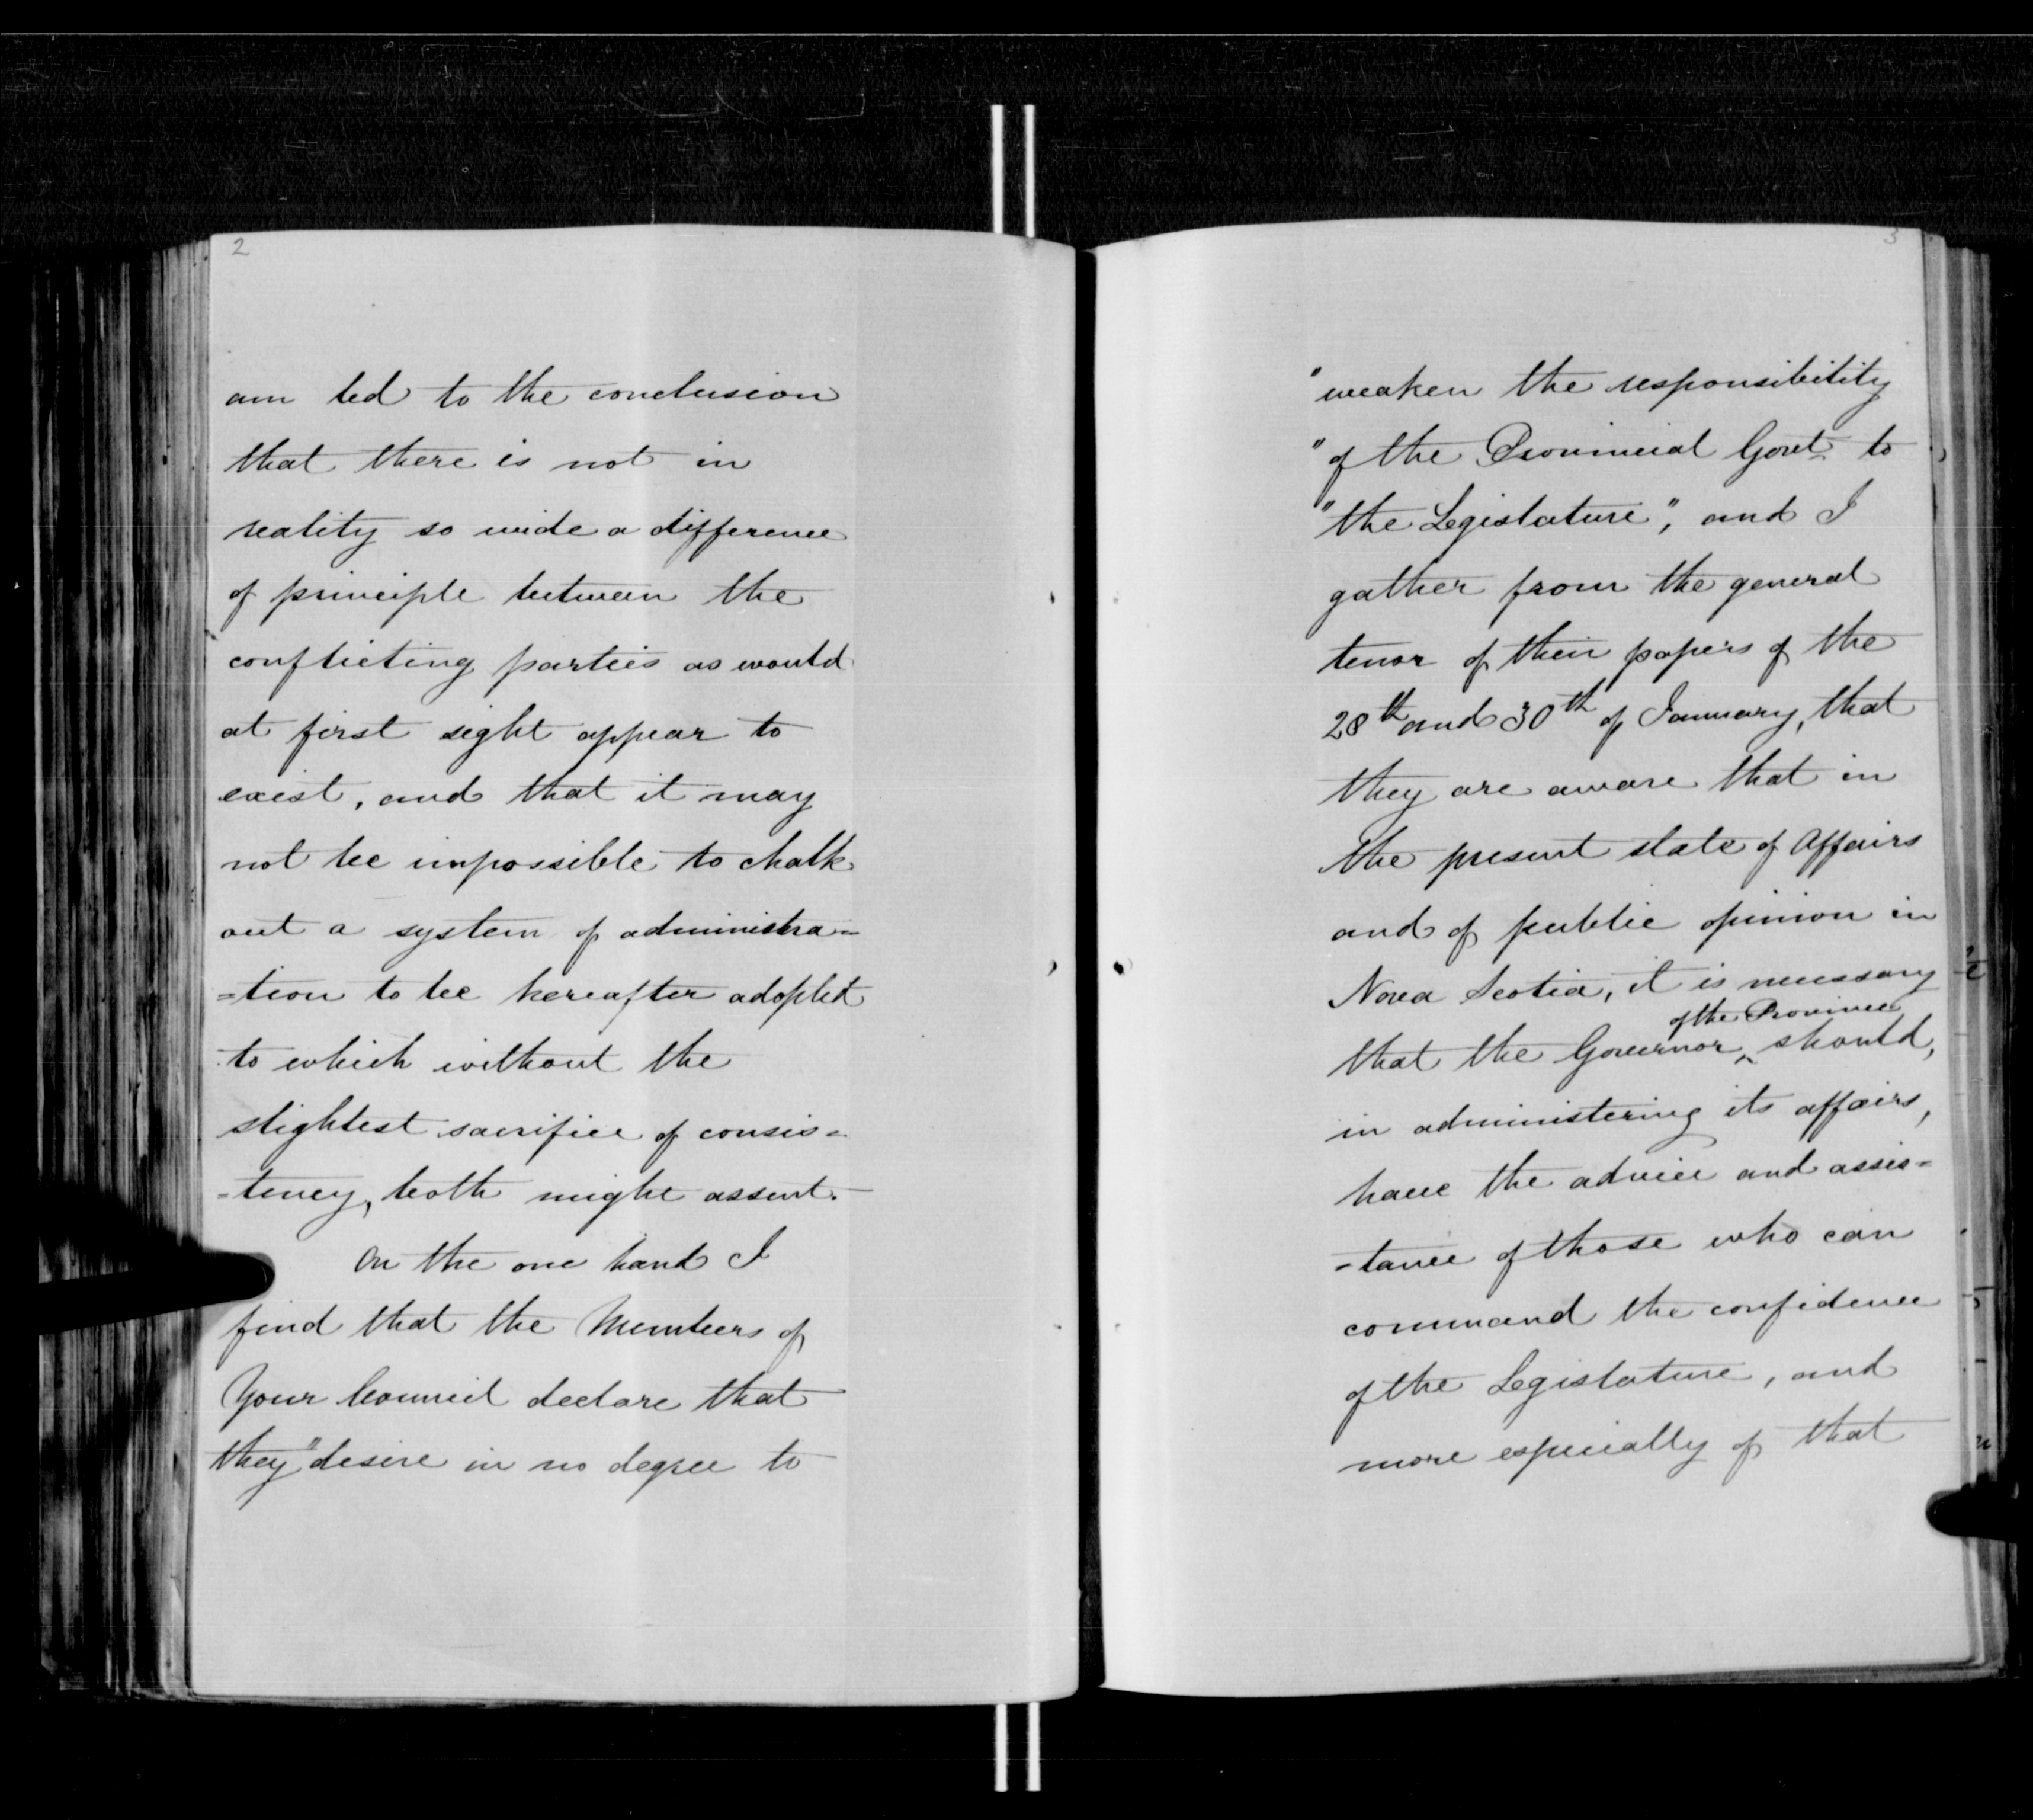 2
am led to the conclusion
that there is not in
reality so wide a difference
of principle between the
conflicting parties as would
at first sight appear to
exist, and that it may
not be impossible to chalk
out a system of administra=
=tion to be hereafter adopted
to which without the
slightest sacrifice of consis=
=tency, both might assent.
On the one hand I
find that the Members of
Your Council declare that
they "desire in no degree to
3
"weaken the responsibility
"of the Provincial Govt to
"the Legislature", and I
gather from the general
tenor of their papers of the
28th and 30th of January, that
they are aware that in
the present state of Affairs
and of public opinion in
Nova Scotia, it is necessary
of the Province
that the Governor ‸ should,
in administering its affairs,
have the advice and assis=
=tance of those who can
command the confidence
of the Legislature, and
more especially of that